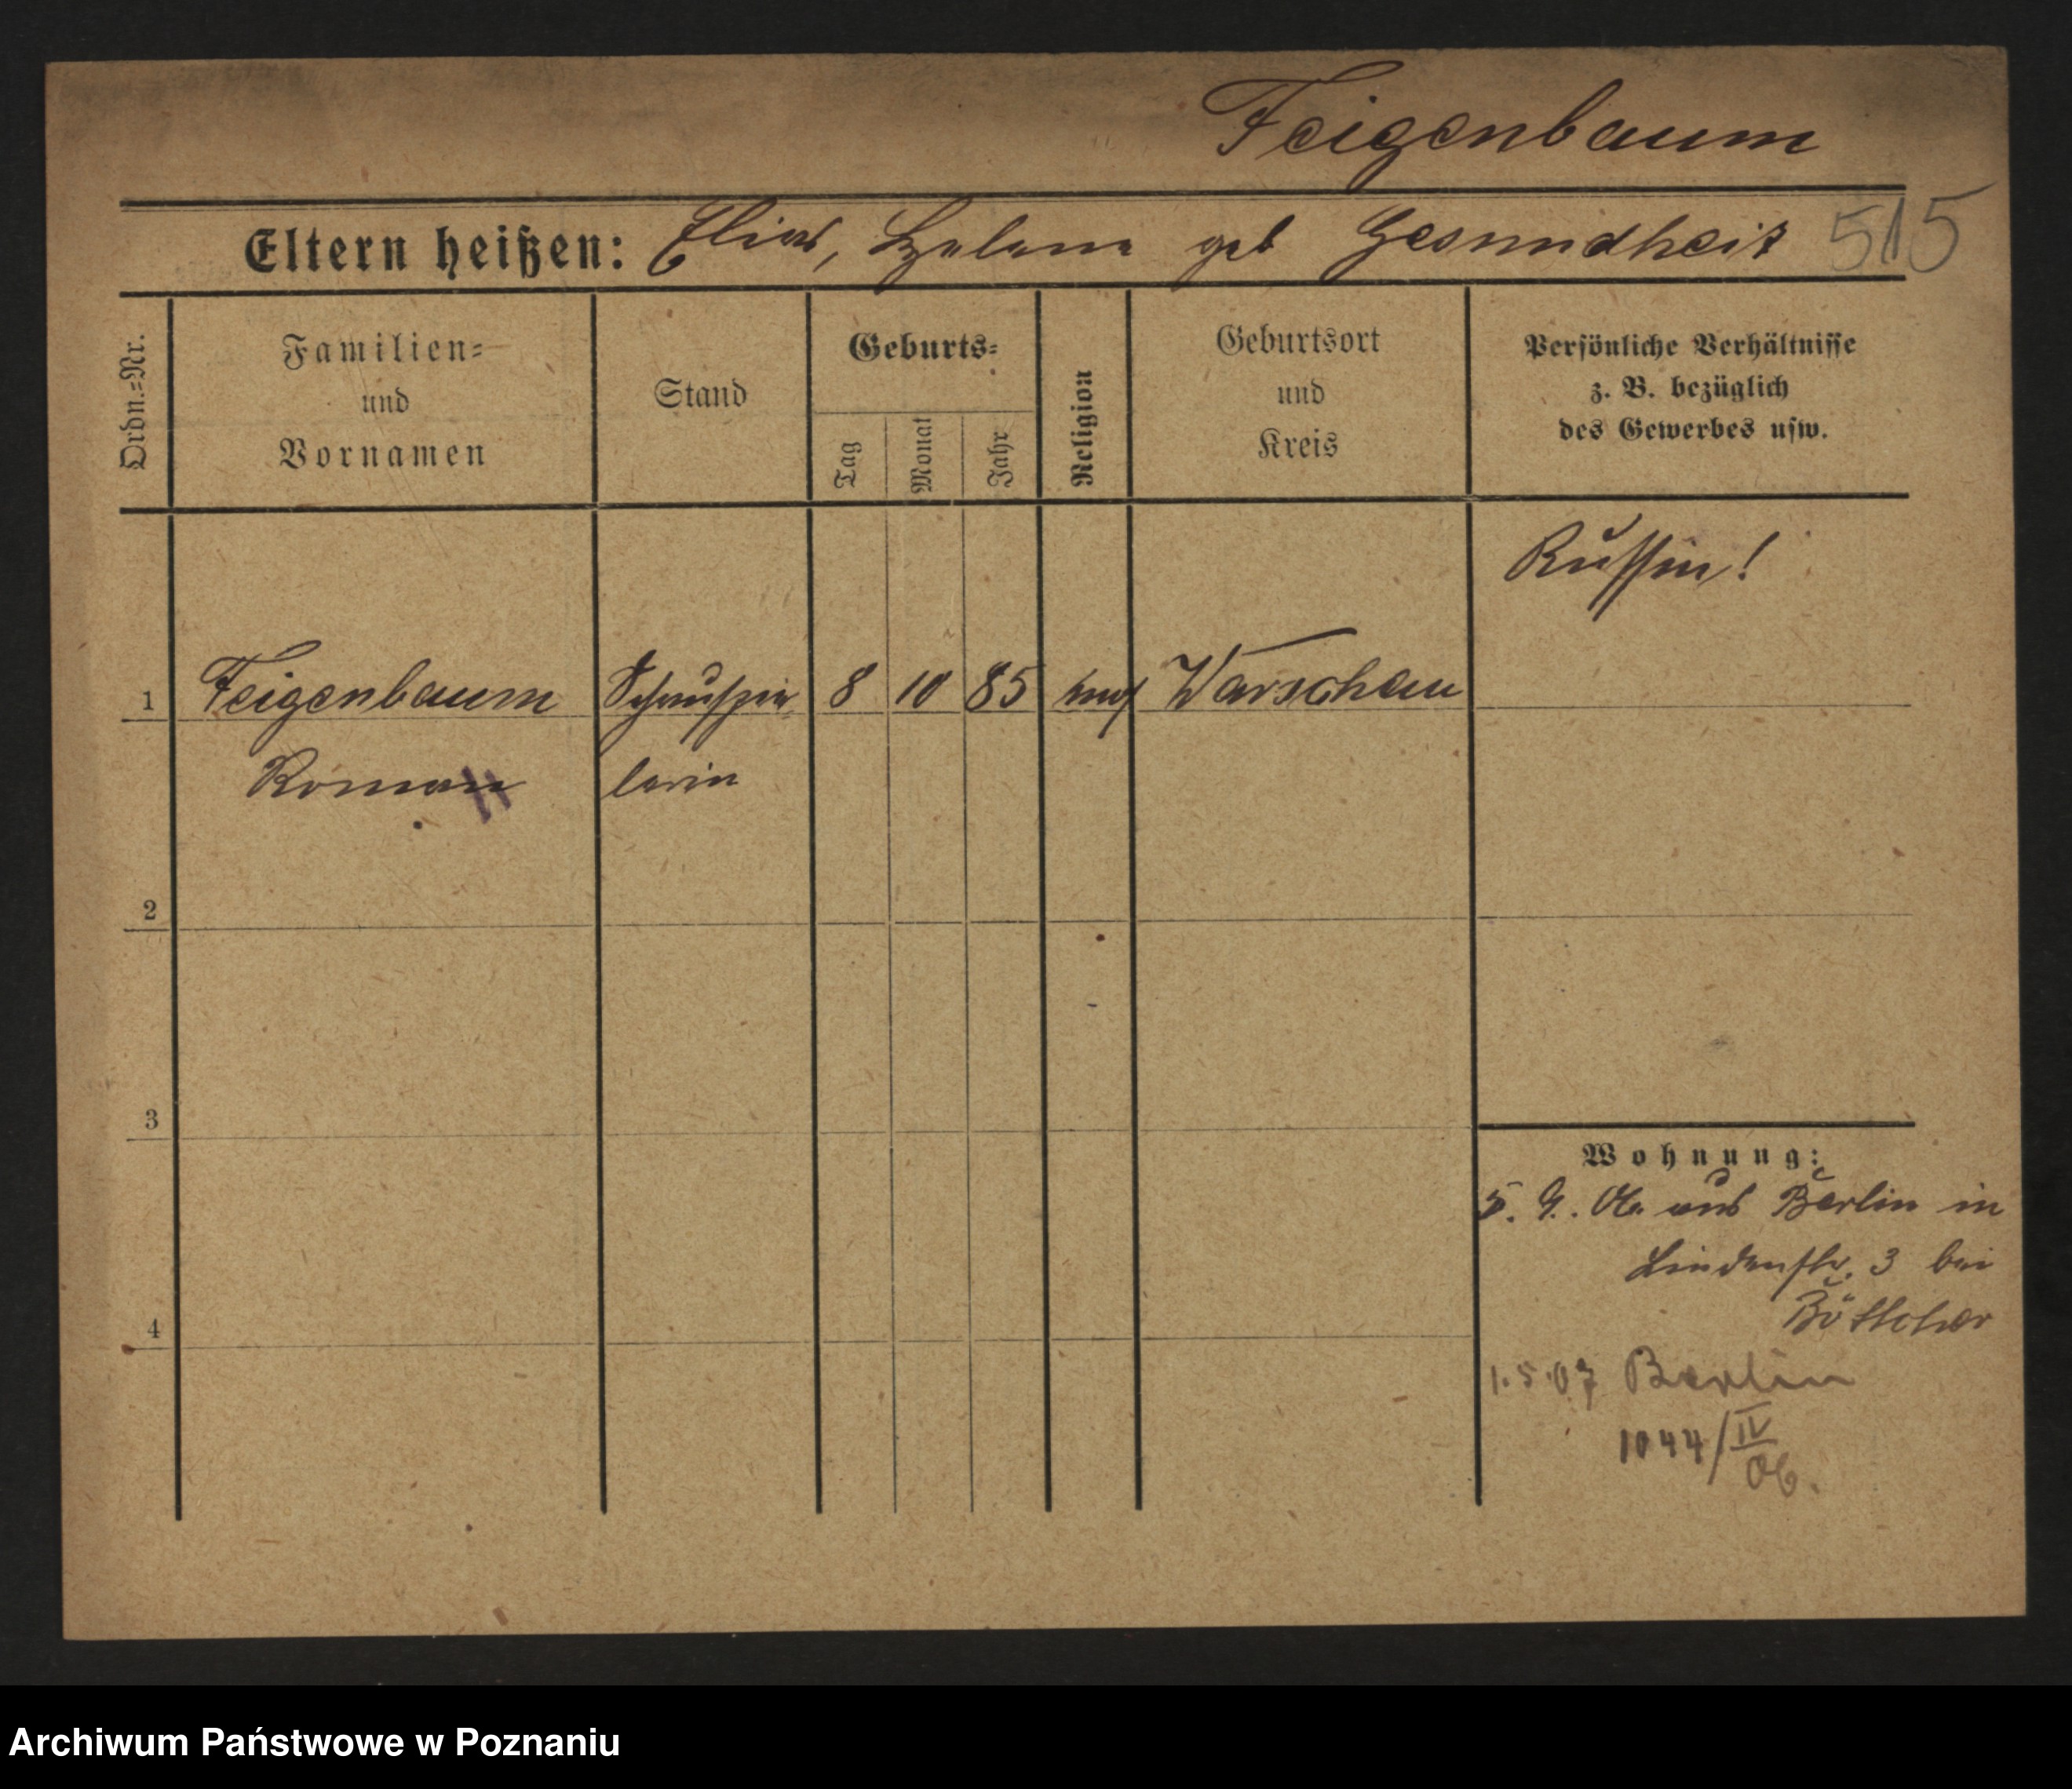 Feigenbaum
Eltern heißen: Elias, Helene geb Gesundheit 515
Ordn.=Nr.
Familien=
und
Vornamen
Stand
Geburts=
Tag
Monat
Jahr
Religion
Geburtsort
und
Kreis
Persönliche Verhältnisse
z. B. bezüglich
des Gewerbes usw.
Russin!
1 Feigenbaum Schauspie 8 10 85 mos Warschau
Roman lerin
2
3
4
Wohnung:
5. 9. 06 aus Berlin in
Lindenstr. 3 bei
Böttcher
1.5.07 Berlin
1044/IV
06.
Archiwum Państwowe w Poznaniu